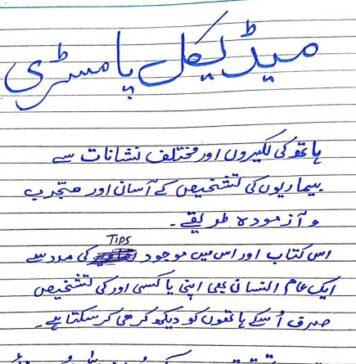 میڈیکل پامسٹری
ہاتھ کی لکیروں اور مختلف نشانات سے
بیماریوں کی تشخیص کے آسان اور متجرب
و آزمودہ طریقے۔
اس کتاب اور اس میں موجود TIPS کی مدد سے
ایک عام انسان بھی اپنی یا کسی اور کی تشخیص
صرف اُسکے ہاتھوں کو دیکھ کر ہی کر سکتا ہے۔